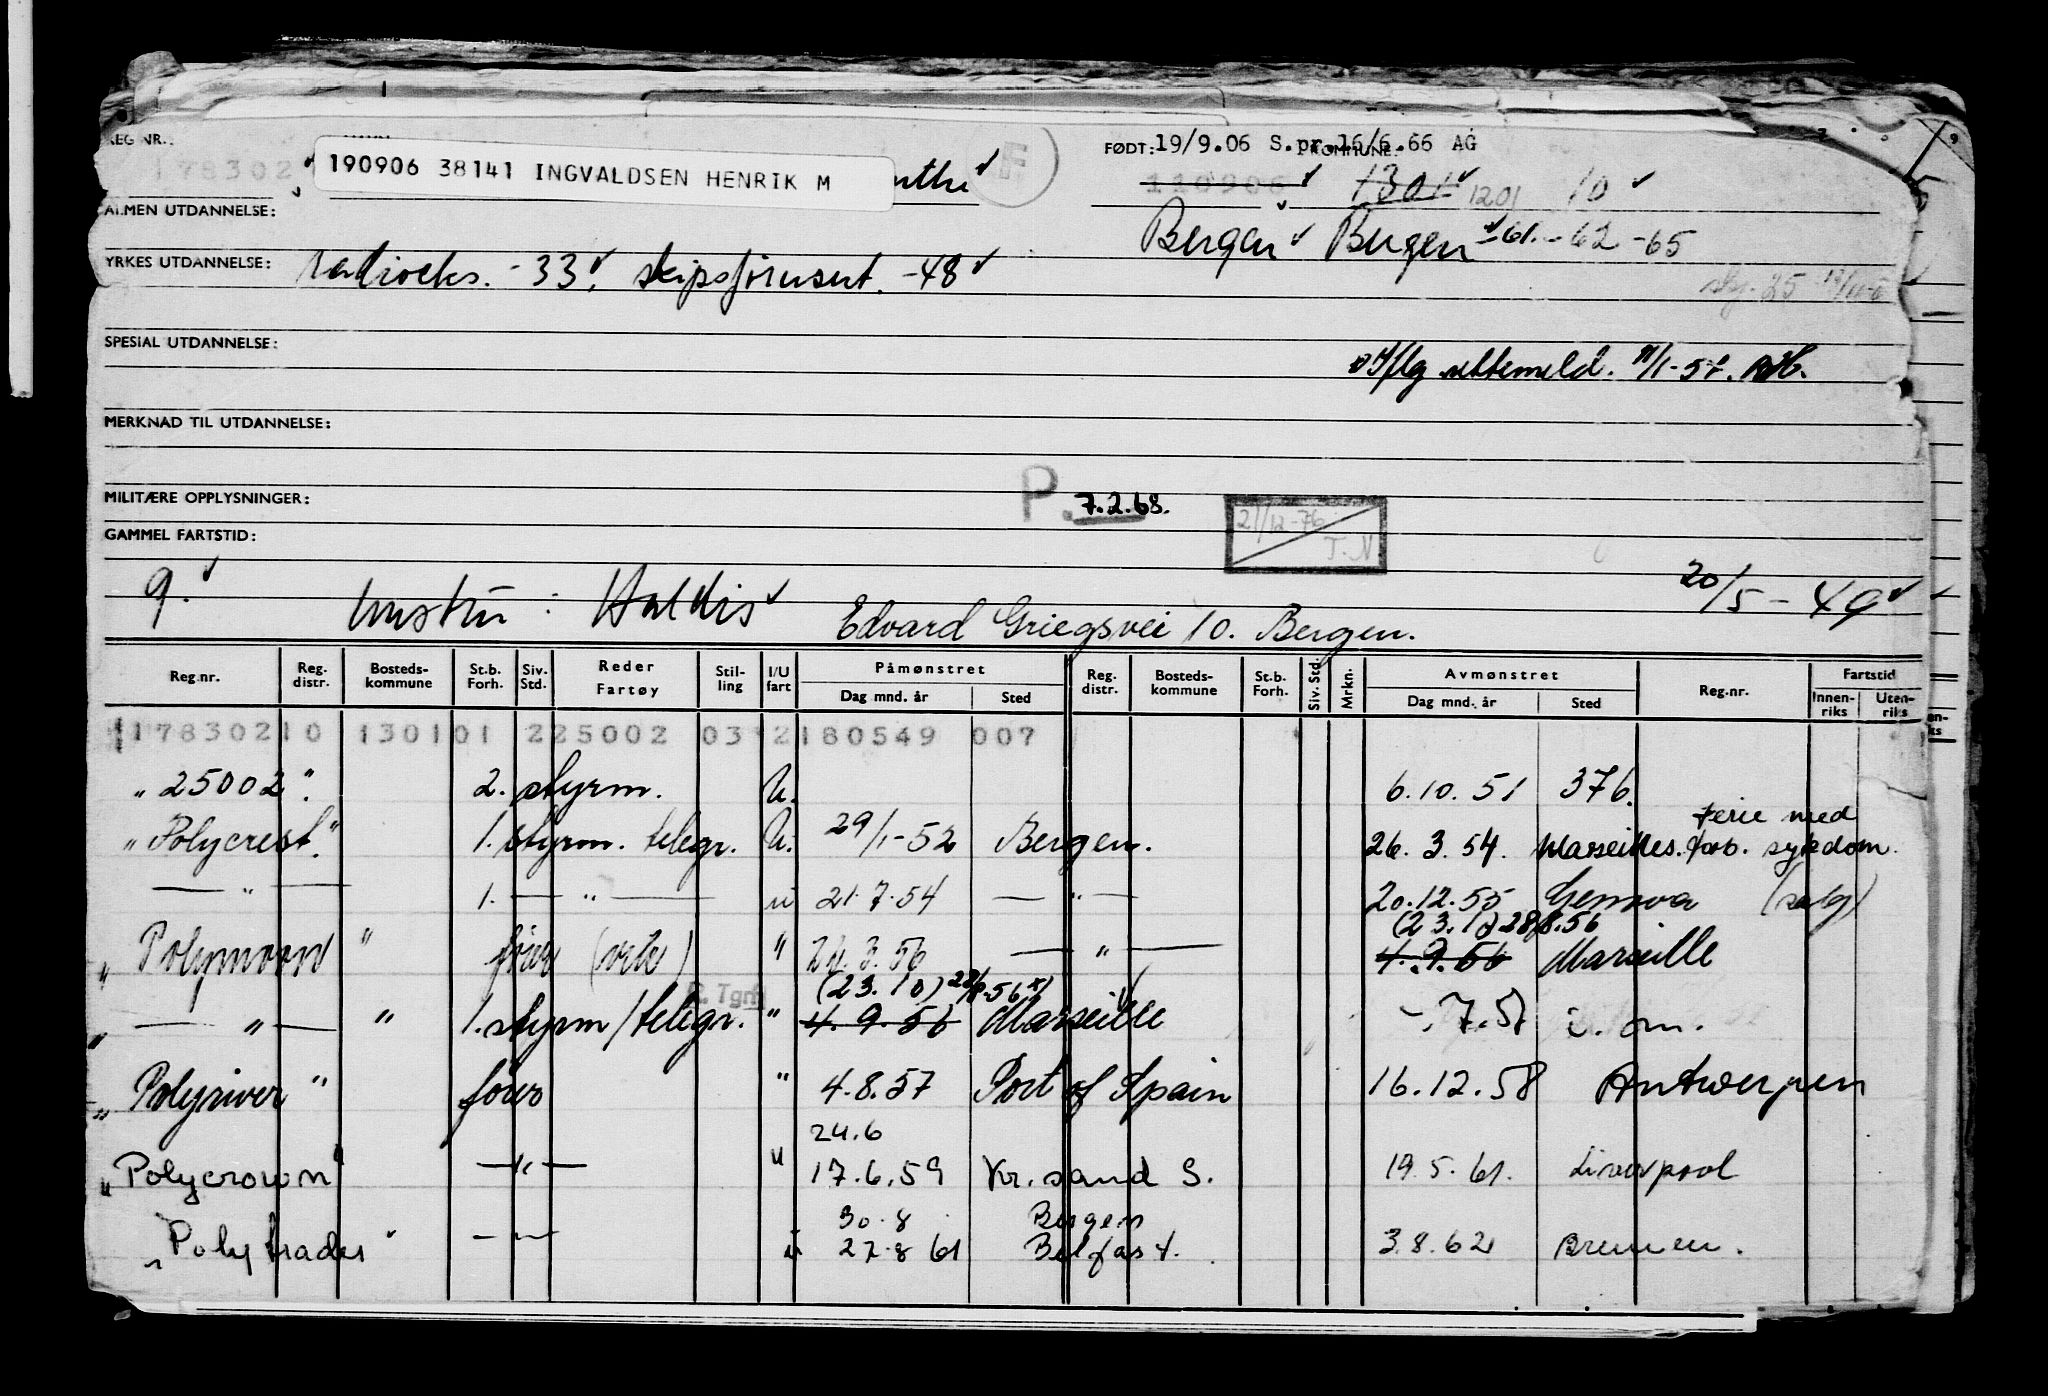 REG NR.: FØDT: 19/9.06 S.pr.16/6.66 AG KOMMUNE:
178302 190906 38141 INGVALDSEN HENRIK M F 110906 1301 1201 10
ALMEN UTDANNELSE: Bergen Bergen -61.-62-65
YRKES UTDANNELSE: -33, -48
SPESIAL UTDANNELSE:
rettemeld. 11/1-57.
MERKNAD TIL UTDANNELSE:
MILITÆRE OPPLYSNINGER: P. 7.2.68. 21/12-76 T.N
GAMMEL FARTSTID:
9. hustru: Haldis Edvard Griegsvei 10. Bergen. 20/5-49
Reg.nr. Reg. distr. Bosteds-kommune St.b. Forh. Siv. Std. Reder Fartøy Stil-ling I/U fart Påmønstret Dag mnd. år Sted Reg. distr. Bosteds-kommune St.b. Forh. Siv. Std. Mrkn. Avmønstret Dag mnd. år Sted Reg.nr. Fartstid Innen-riks Uten-riks
17830210 130101 225002 03 2 180549 007
"25002". 2. styrm. U. 6.10.51 376.
"Polycrest". 1. styrm. telegr. U. 29/1-52 Bergen. 26.3.54. Marseilles. Ferie med forb. sykdom.
— " — 1. — " — u 21.7.54 — " — 20.12.55 Genova (salg)
(23.10) 28/8.56
"Polymoon" fører " 24.3.56 — " — 4.9.56 Marseille
(23.10) 28/8-56 x)
R.Tgm
" — " — " 1. styrm/telegr. " 4.9.56 Marseille -.7.57 i. om.
"Polyriver" fører " 4.8.57 Port of Spain 16.12.58 Antwerpen
24.6
"Polycrown" — " — " 17.6.59 Kr.sand S. 19.5.61. Liverpool
30.8 Bergen
"Polytrader" — " — u 27.8 61 Belfast. 3.8.62 Bremen.